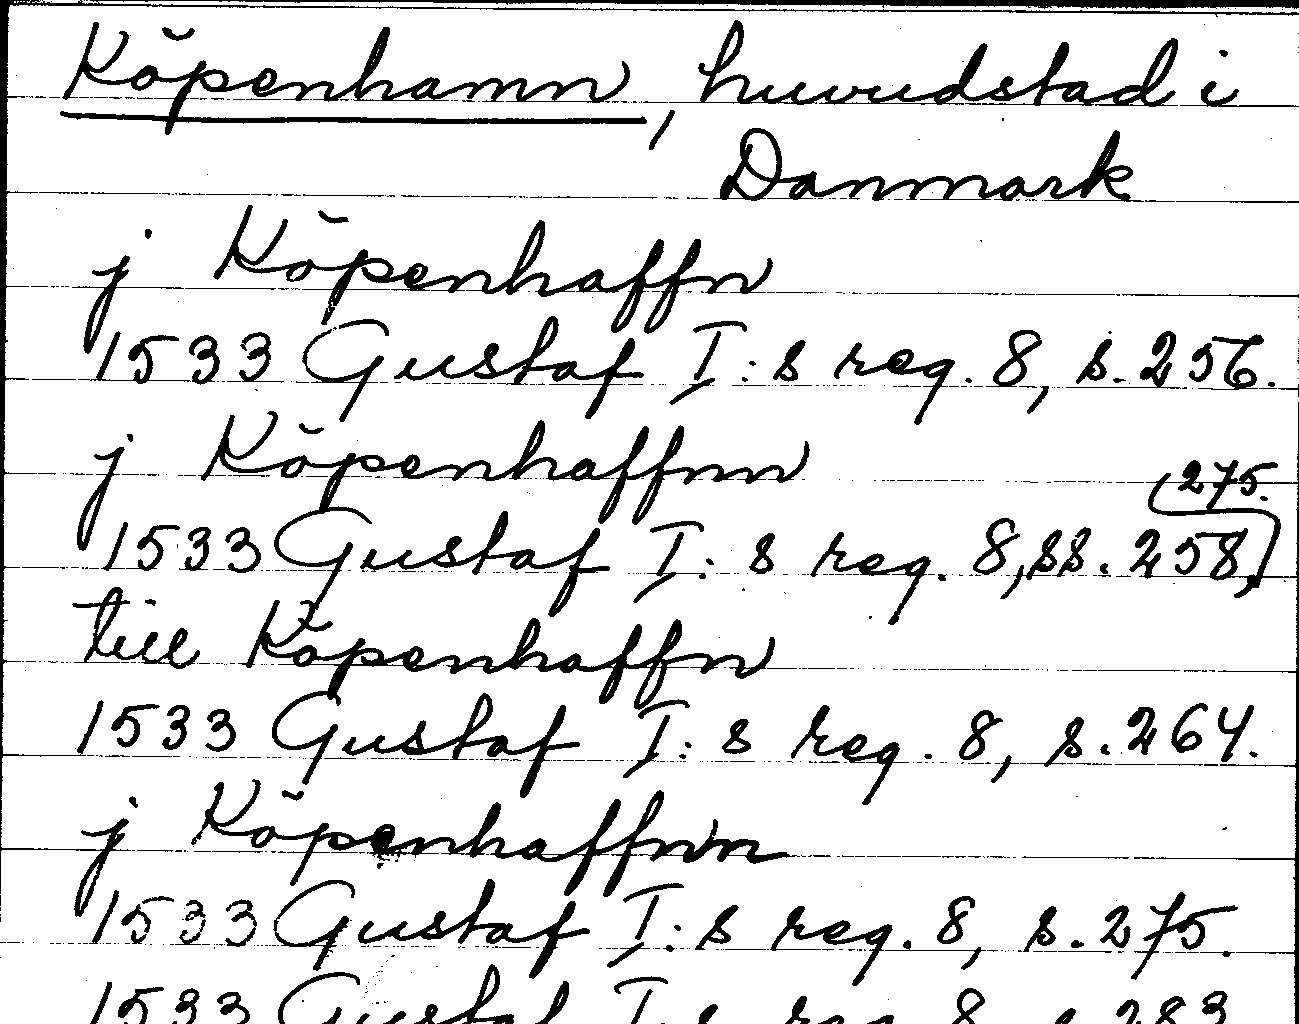 Köpenhamn, huvudstad i
Danmark
j Köpenhaffn
1533 Gustaf I:s reg. 8, s. 256.
j Köpenhaffnn
1533 Gustaf I:s reg. 8, ss. 258, 275.
till Köpenhaffn
1533 Gustaf I:s reg. 8, s. 264.
j Köpenhaffnn
1533 Gustaf I:s reg. 8, s. 275.
1533 Gustaf I:s reg. 8, s. 283